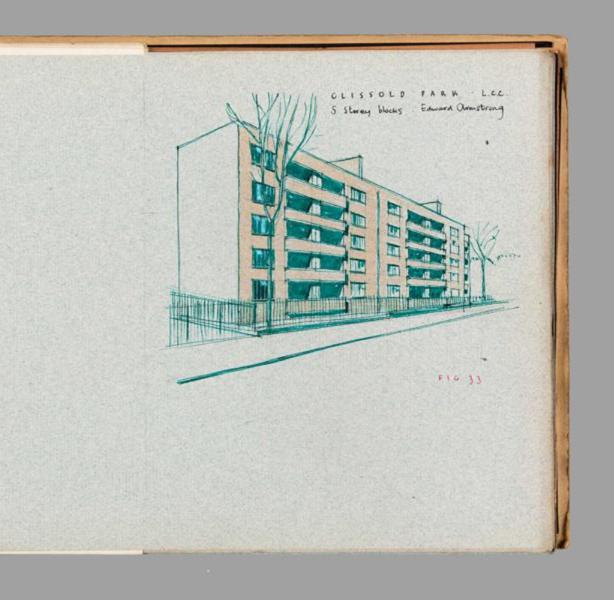 CLISSOLD PARK · L.C.C.
5 Storey blocks Edward Armstrong
FIG 33